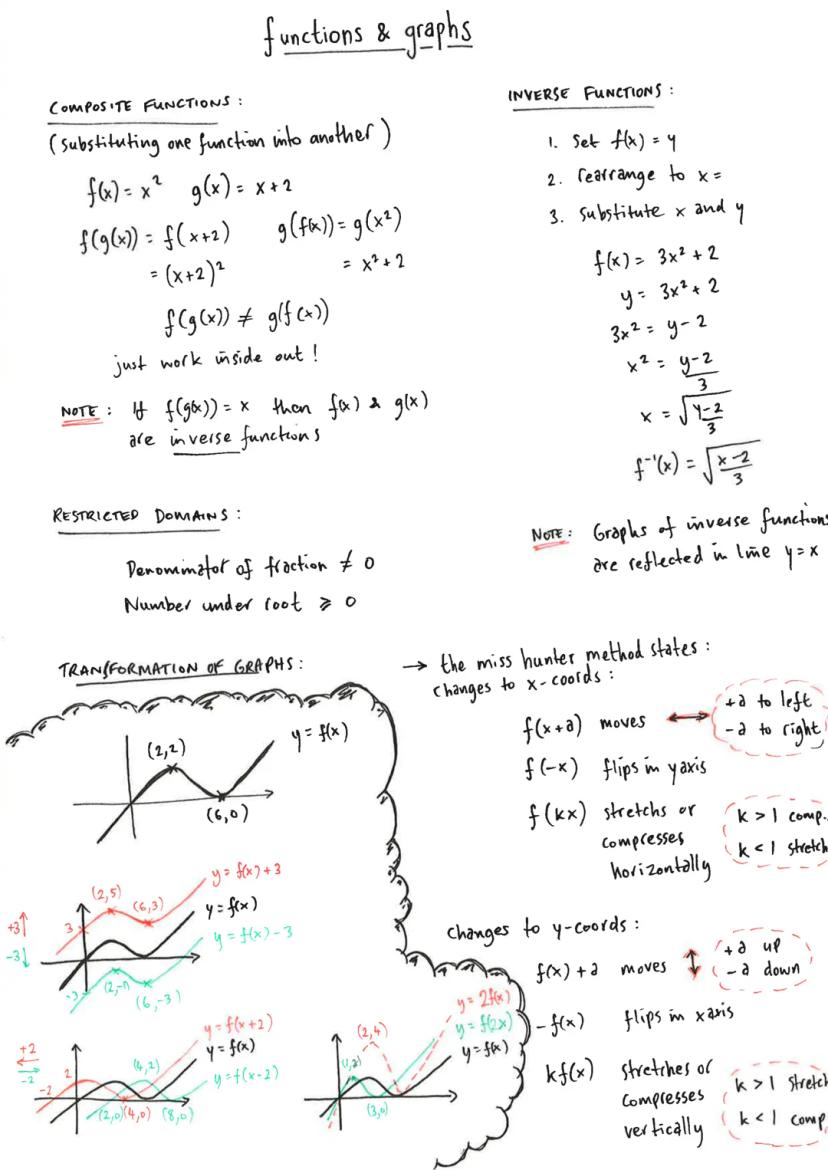 functions & graphs
COMPOSITE FUNCTIONS :
(substituting one function into another)
f(x) = x² g(x) = x + 2
f(g(x)) = f(x+2) g(f(x)) = g(x²)
= (x+2)² = x² + 2
f(g(x)) ≠ g(f(x))
just work inside out !
NOTE : If f(g(x)) = x then f(x) & g(x)
are inverse functions
INVERSE FUNCTIONS :
1. Set f(x) = y
2. rearrange to x =
3. substitute x and y
f(x) = 3x² + 2
y = 3x² + 2
3x² = y - 2
x² = y-2/3
x = √(y-2/3)
f⁻¹(x) = √(x-2/3)
NOTE: Graphs of inverse functions
are reflected in line y = x
RESTRICTED DOMAINS :
Denominator of fraction ≠ 0
Number under root ≥ 0
TRANSFORMATION OF GRAPHS :
y = f(x)
(2,2)
(6,0)
y = f(x) + 3
(2,5) (6,3)
y = f(x)
+3 3
y = f(x) - 3
-3 -3 (2,-1)
(6,-3)
y = f(x+2)
+2 (4,2) y = f(x)
-2 -2 2 y = f(x-2)
(2,0) (4,0) (8,0)
y = 2f(x)
(2,4) y = f(2x)
(1,2) y = f(x)
(3,0)
→ the miss hunter method states :
changes to x-coords :
f(x+a) moves ↔ +a to left
-a to right
f(-x) flips in y axis
f(kx) stretchs or k > 1 comp..
compresses k < 1 stretch
horizontally
changes to y-coords :
f(x) + a moves ↕ +a up
-a down
-f(x) flips in x axis
kf(x) stretches or k > 1 stretch
compresses k < 1 comp
vertically